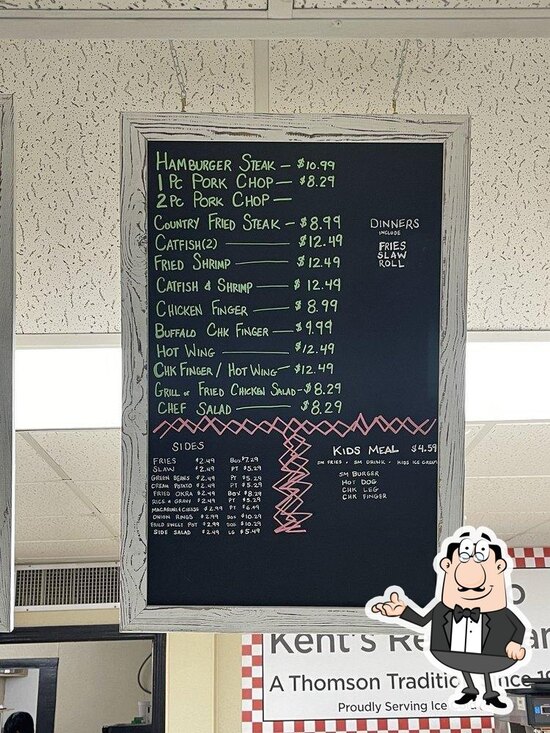 HAMBURGER STEAK — $10.99
1 PC PORK CHOP — $8.29
2 PC PORK CHOP —
COUNTRY FRIED STEAK - $8.99
CATFISH (2) — $12.49
FRIED SHRIMP — $12.49
CATFISH & SHRIMP — $12.49
CHICKEN FINGER — $8.99
BUFFALO CHK FINGER — $9.99
HOT WING — $12.49
CHK FINGER / HOT WING — $12.49
GRILL OR FRIED CHICKEN SALAD - $8.29
CHEF SALAD — $8.29
DINNERS
INCLUDE
FRIES
SLAW
ROLL
SIDES
FRIES $2.49 BOX $7.29
SLAW $2.49 PT $5.29
GREEN BEANS $2.49 PT $5.29
CREAM POTATO $2.49 PT $5.29
FRIED OKRA $2.49 BOX $8.29
RICE & GRAVY $2.49 PT $5.29
MACARONI & CHEESE $2.99 PT $6.49
ONION RINGS $2.99 BOX $10.29
FRIED SWEET POT $2.99 BOX $10.29
SIDE SALAD $2.49 LG $5.49
KIDS MEAL $4.59
SM FRIES • SM DRINK • KIDS ICE CREAM
SM BURGER
HOT DOG
CHK LEG
CHK FINGER
Kent's
A Thomson
Proudly Serving Ice